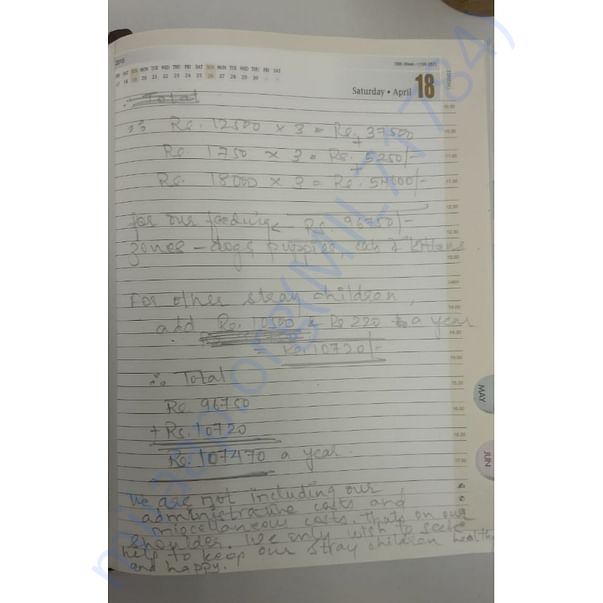 Saturday • April 18
Total
∴ Rs. 12500 × 3 = Rs. 37500
+
Rs. 1750 × 3 = Rs. 5250/-
+
Rs. 18000 × 3 = Rs. 54000/-
for our feeding - Rs. 96750/-
zones - dogs puppies, cats & kittens
For other stray children,
add Rs. 10500 & Rs 220 to a year
= Rs. 10720/-
∴ Total
Rs. 96750
+ Rs. 10720
Rs. 107470 a year.
We are not including our
administrative costs and
miscellaneous costs. Thats on our
shoulder. We only wish to seek
help to keep our stray children healthy
and happy.
MAY
JUN